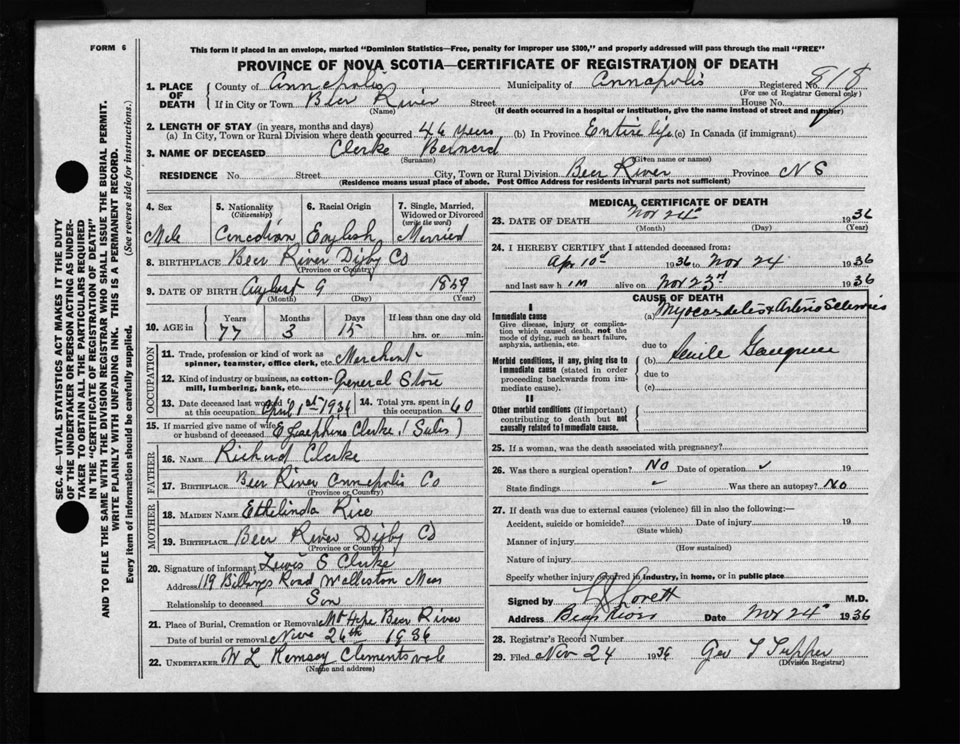 FORM 6
This form if placed in an envelope, marked "Dominion Statistics—Free, penalty for improper use $300," and properly addressed will pass through the mail "FREE"
PROVINCE OF NOVA SCOTIA—CERTIFICATE OF REGISTRATION OF DEATH
SEC. 46—VITAL STATISTICS ACT MAKES IT THE DUTY
OF THE UNDERTAKER OR PERSON ACTING AS UNDER-
TAKER TO OBTAIN ALL THE PARTICULARS REQUIRED
IN THE "CERTIFICATE OF REGISTRATION OF DEATH"
AND TO FILE THE SAME WITH THE DIVISION REGISTRAR WHO SHALL ISSUE THE BURIAL PERMIT.
WRITE PLAINLY WITH UNFADING INK. THIS IS A PERMANENT RECORD.
Every item of Information should be carefully supplied. (See reverse side for instructions.)
1. PLACE OF DEATH County of Annapolis Municipality of Annapolis Registered No. 818
(For use of Registrar General only)
If in City or Town Bear River Street House No.
(Name) (If death occurred in a hospital or institution, give the name instead of street and number)
2. LENGTH OF STAY (in years, months and days)
(a) In City, Town or Rural Division where death occurred 46 years (b) In Province Entire life (c) In Canada (if immigrant)
3. NAME OF DECEASED Clarke Bernard
(Surname) (Given name or names)
RESIDENCE No. Street City, Town or Rural Division Bear River Province N S
(Residence means usual place of abode. Post Office Address for residents in rural parts not sufficient)
4. Sex Male
5. Nationality (Citizenship) Canadian
6. Racial Origin English
7. Single, Married, Widowed or Divorced (write the word) Married
8. BIRTHPLACE Bear River Digby Co
(Province or Country)
9. DATE OF BIRTH August 9 1859
(Month) (Day) (Year)
10. AGE in Years 77 Months 3 Days 15 If less than one day old hrs. or min.
OCCUPATION
11. Trade, profession or kind of work as spinner, teamster, office clerk, etc. Merchant
12. Kind of industry or business, as cotton-mill, lumbering, bank, etc. General Store
13. Date deceased last worked at this occupation April 1st 1936 14. Total yrs. spent in this occupation 60
15. If married give name of wife or husband of deceased E Josephine Clarke
FATHER
16. NAME Richard Clarke
17. BIRTHPLACE Bear River Annapolis Co
(Province or Country)
MOTHER
18. MAIDEN NAME Ethelinda Rice
19. BIRTHPLACE Bear River Digby Co
(Province or Country)
20. Signature of informant Lewis S Clarke
Address 119 Road Mass
Relationship to deceased Son
21. Place of Burial, Cremation or Removal Mt Hope Bear River
Date of burial or removal Nov 26th 1936
22. UNDERTAKER W L Ramsay Clementsvale
(Name and address)
MEDICAL CERTIFICATE OF DEATH
23. DATE OF DEATH Nov 24th 1936
(Month) (Day) (Year)
24. I HEREBY CERTIFY that I attended deceased from:
Apr 10th 1936 to Nov 24 1936
and last saw h im alive on Nov 23rd 1936
CAUSE OF DEATH
I
Immediate cause
Give disease, injury or complication which caused death, not the mode of dying, such as heart failure, asphyxia, asthenia, etc.
(a) Myocarditis & Arterio Sclerosis
due to
Morbid conditions, if any, giving rise to immediate cause (stated in order proceeding backwards from immediate cause).
(b) Senile Gangrene
due to
(c)
II
Other morbid conditions (if important) contributing to death but not causally related to immediate cause.
25. If a woman, was the death associated with pregnancy?
26. Was there a surgical operation? No Date of operation 19
State findings Was there an autopsy? No
27. If death was due to external causes (violence) fill in also the following:—
Accident, suicide or homicide? Date of injury 19
(State which)
Manner of injury
(How sustained)
Nature of injury
Specify whether injury occurred in industry, in home, or in public place
Signed by Lovett M.D.
Address Bear River Date Nov 24th 1936
28. Registrar's Record Number
29. Filed Nov 24 1936 Geo T Tupper
(Division Registrar)